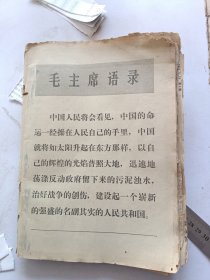 毛主席语录
中国人民将会看见，中国的命
运一经操在人民自己的手里，中国
就将如太阳升起在东方那样，以自
己的辉煌的光焰普照大地，迅速地
荡涤反动政府留下来的污泥浊水，
治好战争的创伤，建设起一个崭新
的强盛的名副其实的人民共和国。